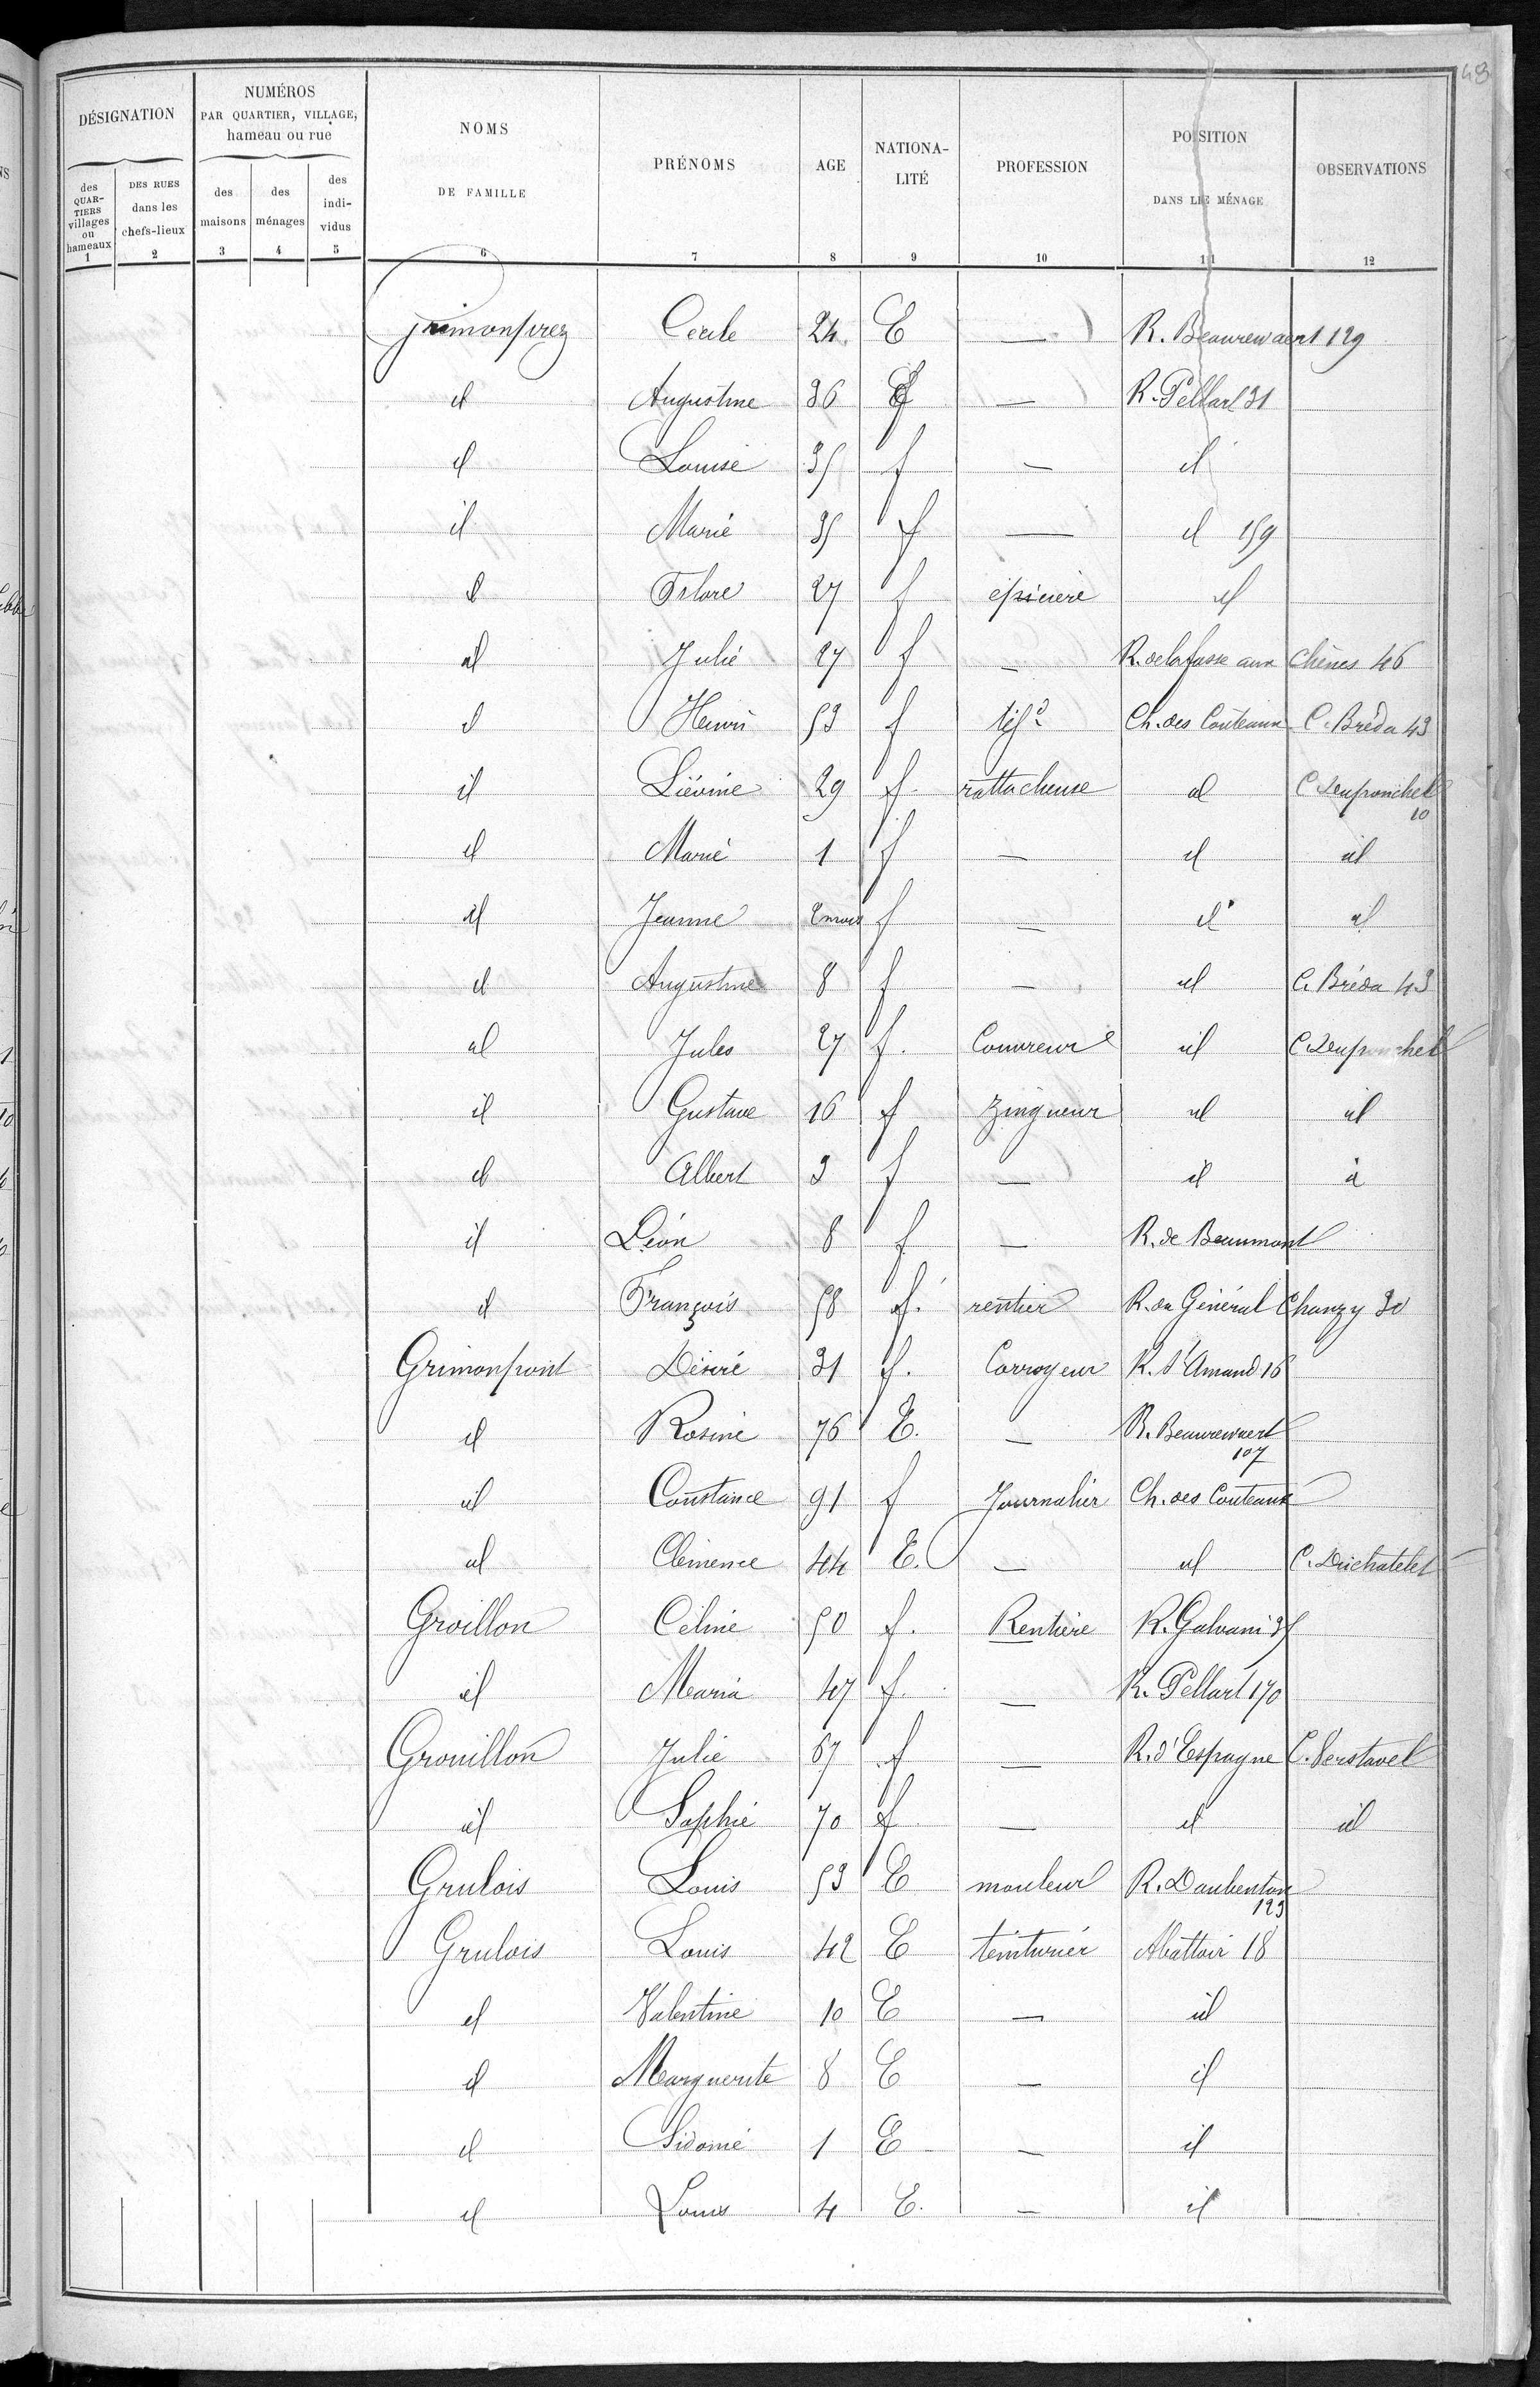 48
DÉSIGNATION
NUMÉROS
PAR QUARTIER, VILLAGE,
hameau ou rue
NOMS
DE FAMILLE
PRÉNOMS
AGE
NATIONA-
LITÉ
PROFESSION
POSITION
DANS LE MÉNAGE
OBSERVATIONS
des
QUAR-
TIERS
villages
ou
hameaux
DES RUES
dans les
chefs-lieux
des
maisons
des
ménages
des
indi-
vidus
1 2 3 4 5 6 7 8 9 10 11 12
Grimonprez Cecile 24 E — R. Beaurewaert 129
id Augustine 36 f — R. Pellart 31
id Louise 35 f — id
id Marie 35 f — id 159
id Flore 27 f épiciere id
id Julie 27 f — R. de la fosse aux Chênes 46
id Henri 53 f tisd Ch. des Couteaux C. Bréda 43
id Liévine 29 f. rattacheuse id C. Deuponchel
10
id Marie 1 f — id id
id Jeanne 2 mois f — id id
id Augustine 8 f — id C. Bréda 43
id Jules 27 f. Couvreur id C. Deuponchel
id Gustave 16 f zingueur id id
id Albert 3 f — id id
id Léon 8 f — R. de Beaumont
id François 58 f. rentier R. du Général Chanzy 30
Grimonpont Désiré 31 f. Corroyeur R. St Amand 16
id Rosine 76 E. — R. Beaurewaert
107
id Constance 91 f Journalier Ch. des Couteaux
id Clémence 44 E. — id C. Duchatelet
Groillon Céline 50 f. Rentière R. Galvani 35
id Maria 47 f. — R. Pellart 170
Grouillon Julie 67 f — R. d'Espagne C. Verstavel
id Sophie 70 f — id id
Grulois Louis 53 E mouleur R. Daubenton
123
Grulois Louis 42 E teinturier Abattoir 18
id Valentine 10 E — id
id Marguerite 8 E — id
id Sidonie 1 E — id
id Louis 4 E. — id